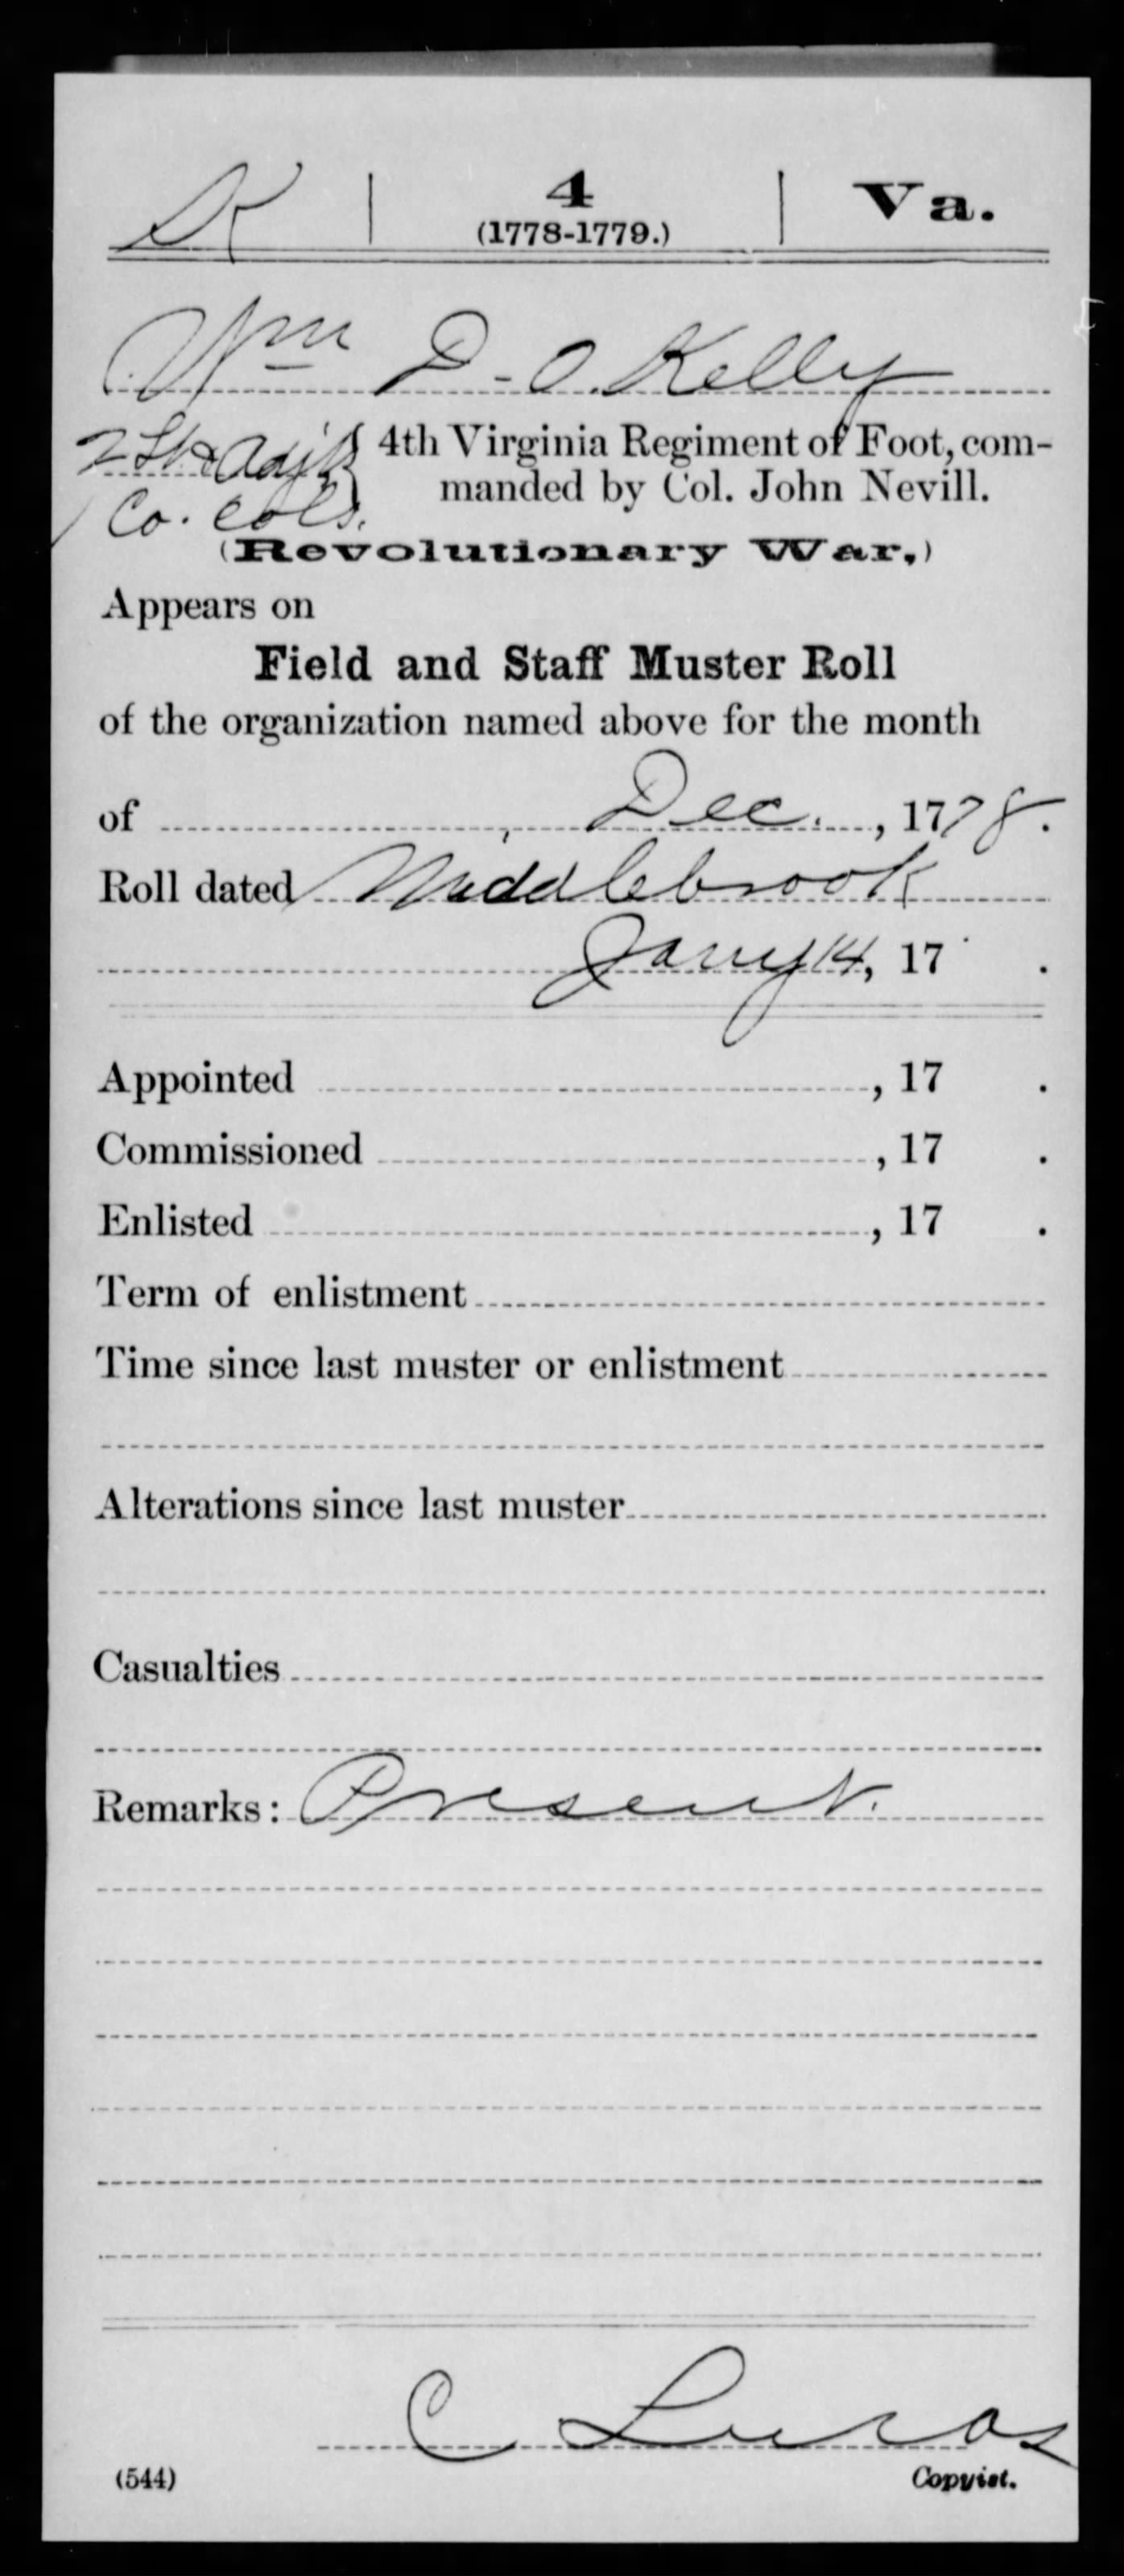 K | 4 | Va.
(1778-1779.)
Wm D-O. Kelly
2 Lt & Adjt } 4th Virginia Regiment of Foot, com-
Co. Cols. manded by Col. John Nevill.
(Revolutionary War.)
Appears on
Field and Staff Muster Roll
of the organization named above for the month
of Dec. , 1778.
Roll dated Middlebrook
Jany 14, 17 .
Appointed , 17 .
Commissioned , 17 .
Enlisted , 17 .
Term of enlistment
Time since last muster or enlistment
Alterations since last muster
Casualties
Remarks: Present.
C Lucas
(544) Copyist.